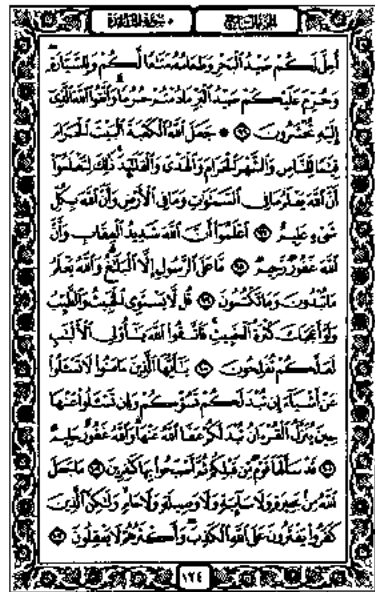 الجزء السابع سورة المائدة
أُحِلَّ لَكُمْ صَيْدُ ٱلْبَحْرِ وَطَعَامُهُۥ مَتَـٰعًا لَّكُمْ وَلِلسَّيَّارَةِ ۖ
وَحُرِّمَ عَلَيْكُمْ صَيْدُ ٱلْبَرِّ مَا دُمْتُمْ حُرُمًا ۗ وَٱتَّقُوا۟ ٱللَّهَ ٱلَّذِىٓ
إِلَيْهِ تُحْشَرُونَ ٩٦ ۞ جَعَلَ ٱللَّهُ ٱلْكَعْبَةَ ٱلْبَيْتَ ٱلْحَرَامَ
قِيَـٰمًا لِّلنَّاسِ وَٱلشَّهْرَ ٱلْحَرَامَ وَٱلْهَدْىَ وَٱلْقَلَـٰٓئِدَ ۚ ذَٰلِكَ لِتَعْلَمُوٓا۟
أَنَّ ٱللَّهَ يَعْلَمُ مَا فِى ٱلسَّمَـٰوَٰتِ وَمَا فِى ٱلْأَرْضِ وَأَنَّ ٱللَّهَ بِكُلِّ
شَىْءٍ عَلِيمٌ ٩٧ ٱعْلَمُوٓا۟ أَنَّ ٱللَّهَ شَدِيدُ ٱلْعِقَابِ وَأَنَّ
ٱللَّهَ غَفُورٌ رَّحِيمٌ ٩٨ مَّا عَلَى ٱلرَّسُولِ إِلَّا ٱلْبَلَـٰغُ ۗ وَٱللَّهُ يَعْلَمُ
مَا تُبْدُونَ وَمَا تَكْتُمُونَ ٩٩ قُل لَّا يَسْتَوِى ٱلْخَبِيثُ وَٱلطَّيِّبُ
وَلَوْ أَعْجَبَكَ كَثْرَةُ ٱلْخَبِيثِ ۚ فَٱتَّقُوا۟ ٱللَّهَ يَـٰٓأُو۟لِى ٱلْأَلْبَـٰبِ
لَعَلَّكُمْ تُفْلِحُونَ ١٠٠ يَـٰٓأَيُّهَا ٱلَّذِينَ ءَامَنُوا۟ لَا تَسْـَٔلُوا۟
عَنْ أَشْيَآءَ إِن تُبْدَ لَكُمْ تَسُؤْكُمْ وَإِن تَسْـَٔلُوا۟ عَنْهَا
حِينَ يُنَزَّلُ ٱلْقُرْءَانُ تُبْدَ لَكُمْ عَفَا ٱللَّهُ عَنْهَا ۗ وَٱللَّهُ غَفُورٌ حَلِيمٌ
١٠١ قَدْ سَأَلَهَا قَوْمٌ مِّن قَبْلِكُمْ ثُمَّ أَصْبَحُوا۟ بِهَا كَـٰفِرِينَ ١٠٢ مَا جَعَلَ
ٱللَّهُ مِنۢ بَحِيرَةٍ وَلَا سَآئِبَةٍ وَلَا وَصِيلَةٍ وَلَا حَامٍ ۙ وَلَـٰكِنَّ ٱلَّذِينَ
كَفَرُوا۟ يَفْتَرُونَ عَلَى ٱللَّهِ ٱلْكَذِبَ ۖ وَأَكْثَرُهُمْ لَا يَعْقِلُونَ ١٠٣
١٢٤